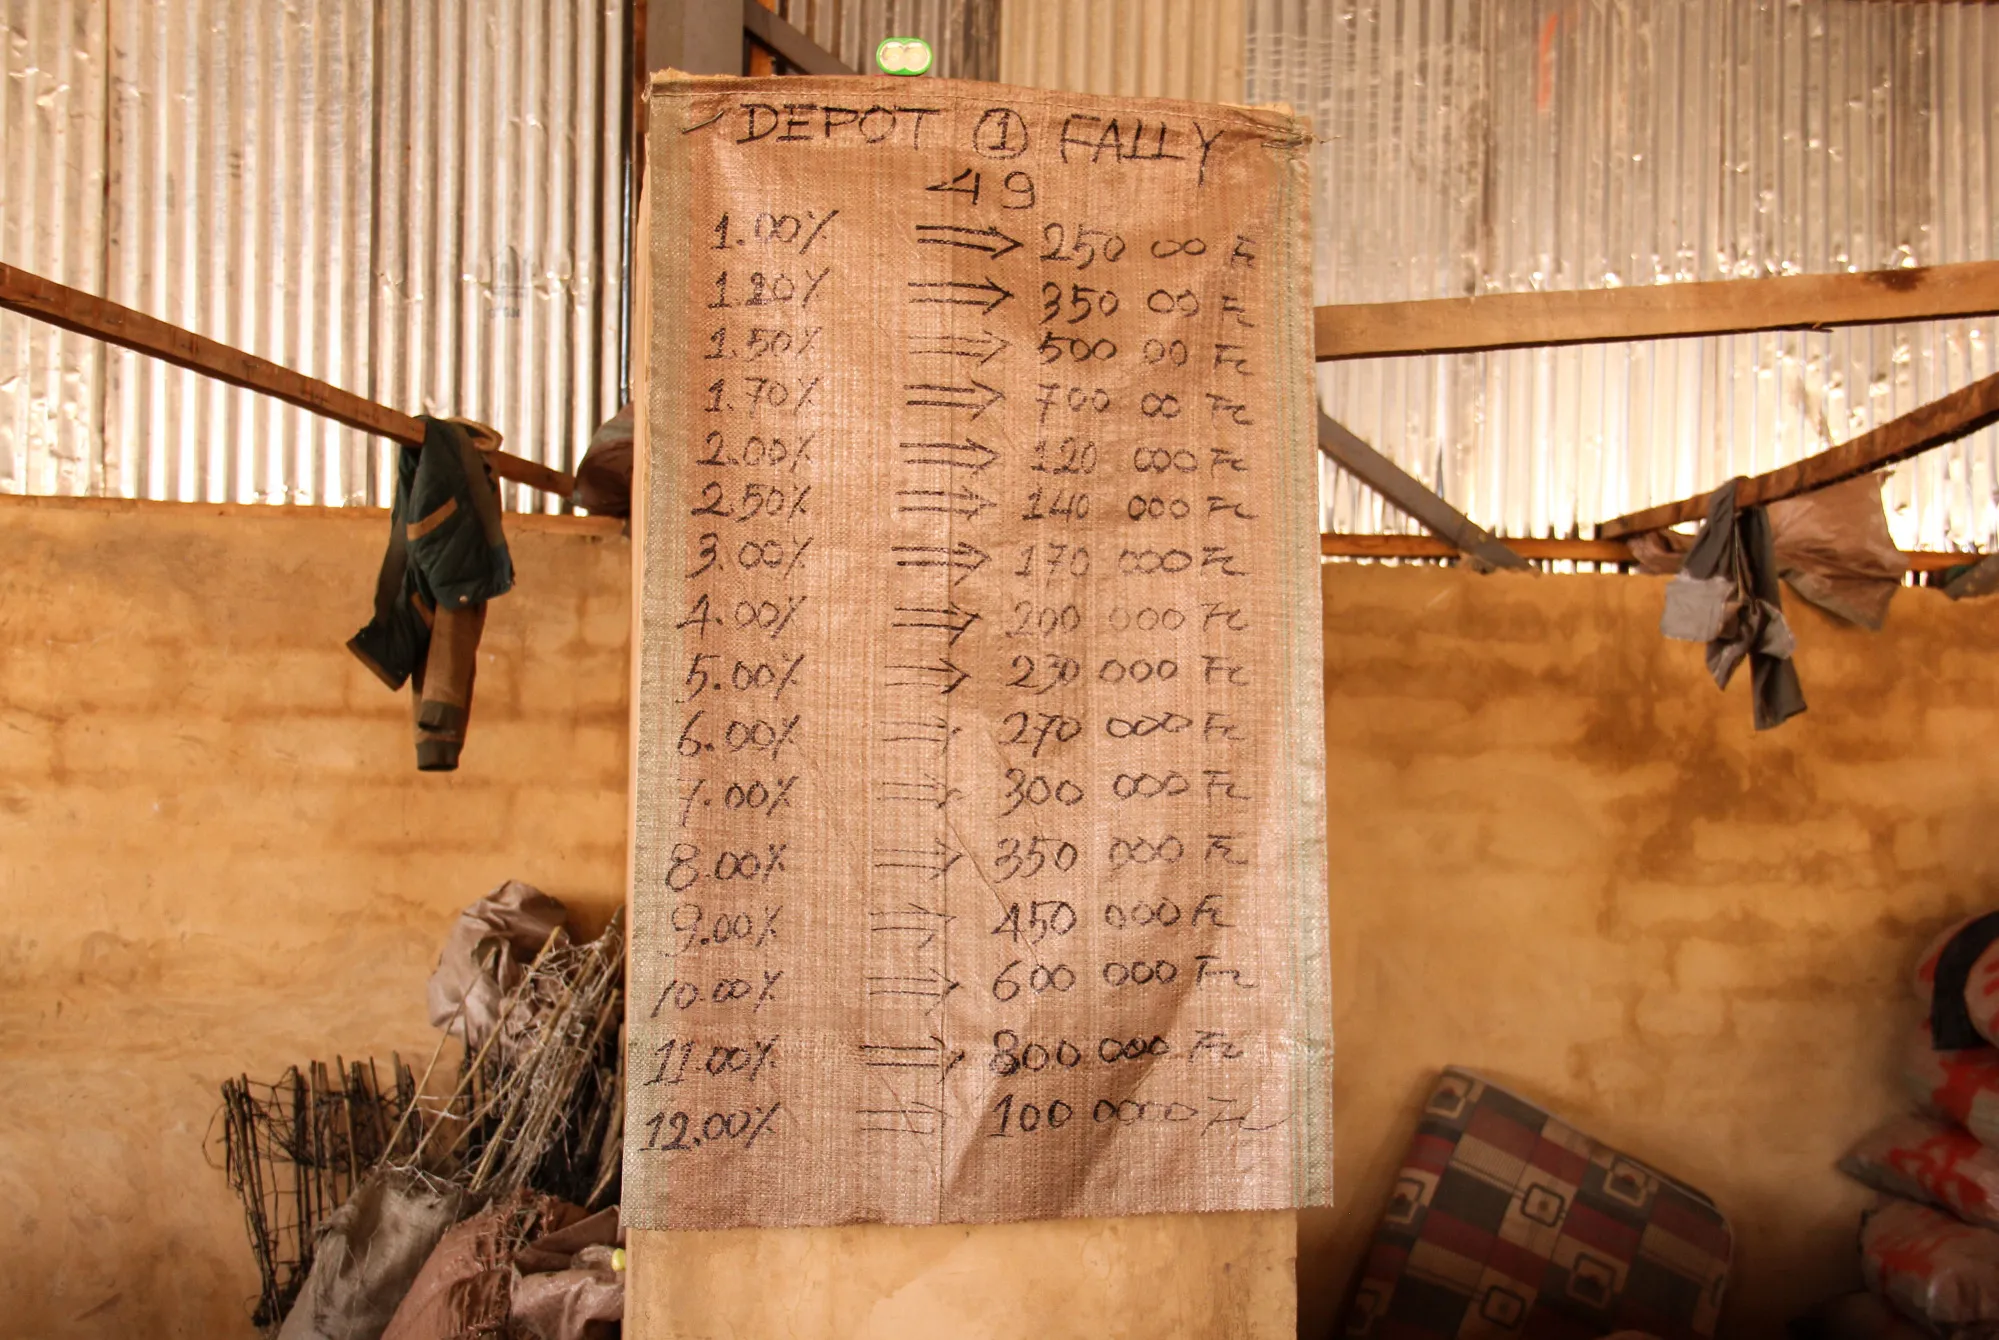 DEPOT ① FALLY
49
1.00% ⇒ 250 00 Fc
1.20% ⇒ 350 00 Fc
1.50% ⇒ 500 00 Fc
1.70% ⇒ 700 00 Fc
2.00% ⇒ 120 000 Fc
2.50% ⇒ 140 000 Fc
3.00% ⇒ 170 000 Fc
4.00% ⇒ 200 000 Fc
5.00% ⇒ 230 000 Fc
6.00% ⇒ 270 000 Fc
7.00% ⇒ 300 000 Fc
8.00% ⇒ 350 000 Fc
9.00% ⇒ 450 000 Fc
10.00% ⇒ 600 000 Fc
11.00% ⇒ 800 000 Fc
12.00% ⇒ 100 0000 Fc